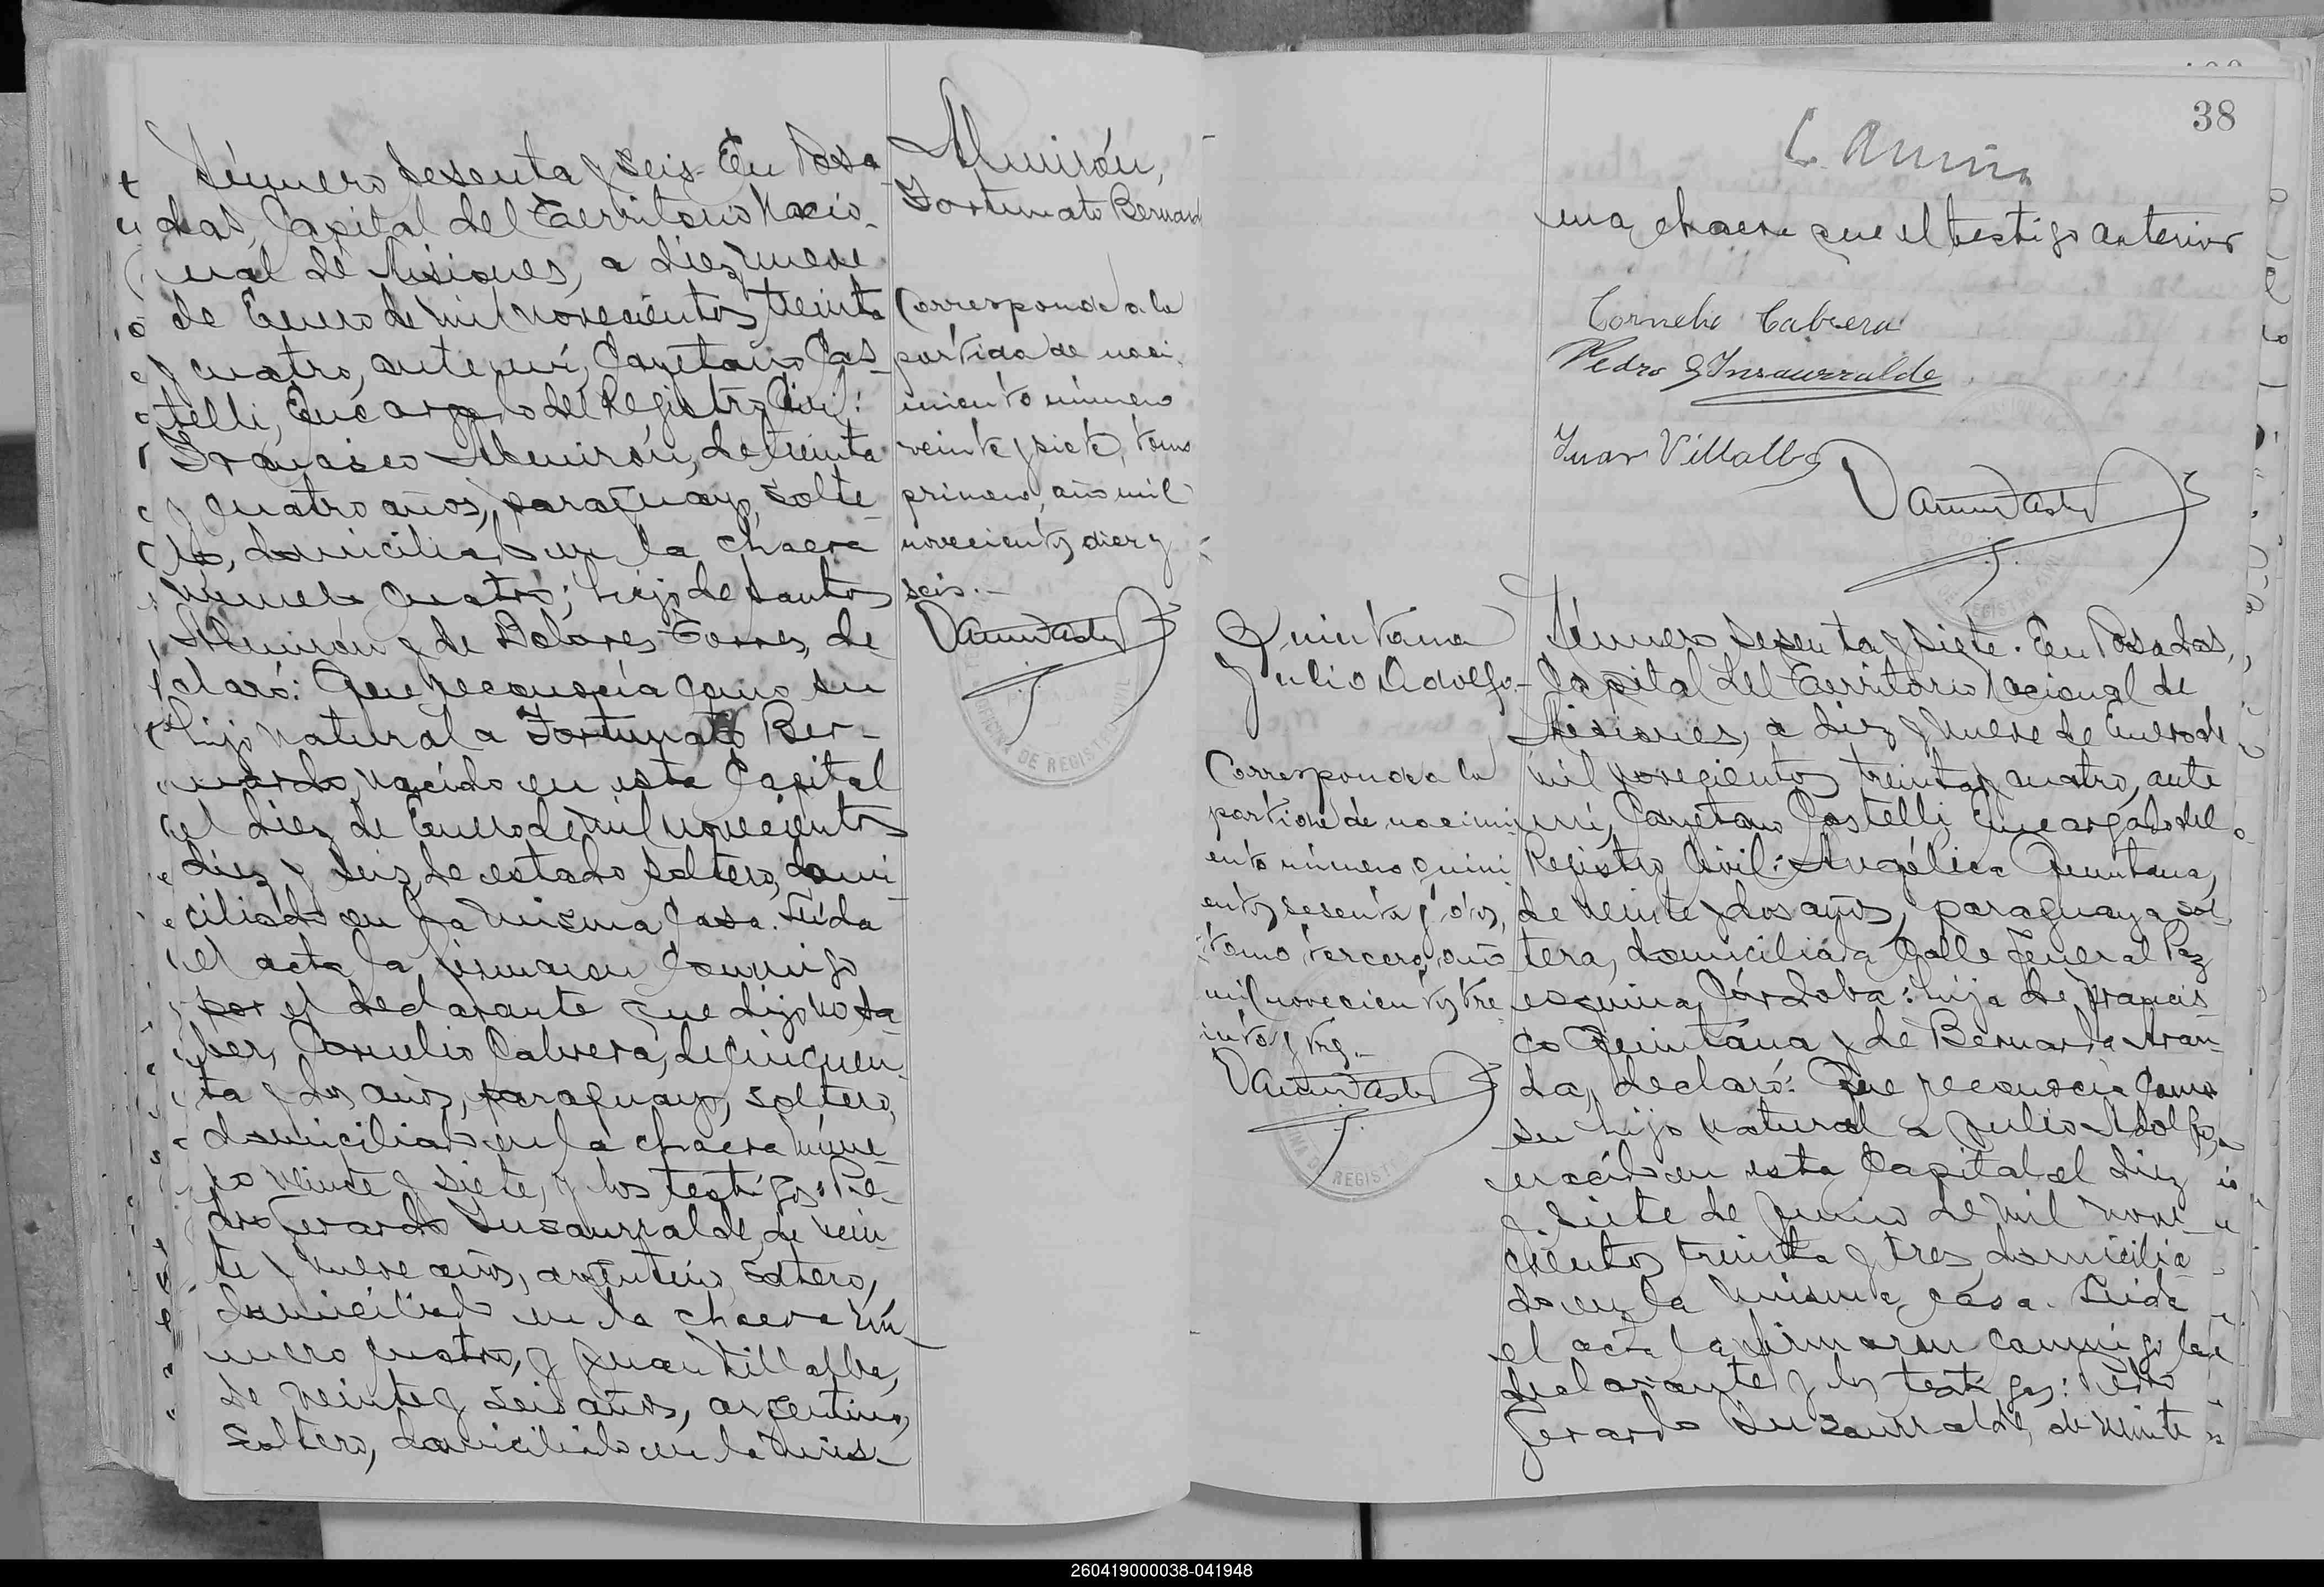 Número sesenta y seis. En Posa-
das, Capital del Territorio Nacio-
nal de Misiones, a diez y nueve
de Enero de mil novecientos treinta
y cuatro, ante mí, Cayetano Cas-
telli, Encargado del Registro Civil:
Francisco Almirón, de treinta
y cuatro años, paraguayo, solte-
ro, domiciliado en la chacra
número cuatro; hijo de Santos
Almirón y de Dolores Torres, de-
claró: Que reconocía como su
hijo natural a Fortunato Ber-
nardo, nacido en esta Capital
el diez de Enero de mil novecientos
diez y seis, de estado soltero, domi-
ciliado en la misma casa. Leída
el acta la firmaron conmigo
por el declarante que dijo no sa-
ber, Cornelio Cabrera, de cincuen-
ta y dos años, paraguayo, soltero,
domiciliado en la chacra núme-
ro veinte y siete, y los testigos: Pe-
dro Gerardo Insaurralde, de vein-
te y nueve años, argentino, soltero,
domiciliado en la chacra nú-
mero cuatro, y Juan Villalba,
de veinte y seis años, argentino,
soltero, domiciliado en la mis-
Almirón,
Fortunato Bernardo
Corresponde a la
partida de naci-
miento número
veinte y siete, tomo
primero, año mil
novecientos diez y
seis.-
OFICINA DE REGISTRO CIVIL
38
ma chacra que el testigo anterior
Cornelio Cabrera
Pedro G Insaurralde
Juan Villalba
DE REGISTRO CIVIL
Quintana
Julio Adolfo.-
Corresponde a la
partida de nacimi-
ento número quini-
entos sesenta y dos,
tomo tercero, año
mil novecientos tre-
inta y tres.-
REGISTRO
Número sesenta y siete. En Posadas,
Capital del Territorio Nacional de
Misiones, a diez y nueve de Enero de
mil novecientos treinta y cuatro, ante
mí, Cayetano Castelli, Encargado del
Registro Civil: Angélica Quintana,
de veinte y dos años, paraguaya, sol-
tera, domiciliada Calle General Paz
esquina Córdoba; hija de Francis-
co Quintana y de Bernarda Aran-
da, declaró: Que reconocía como
su hijo natural a Julio Adolfo,
nacido en esta Capital el diez
y siete de Junio de mil nove-
cientos treinta y tres, domicilia-
do en la misma casa. Leída
el acta la firmaron conmigo la
declarante y los testigos: Pedro
Gerardo Insaurralde, de veinte
260419000038-041948